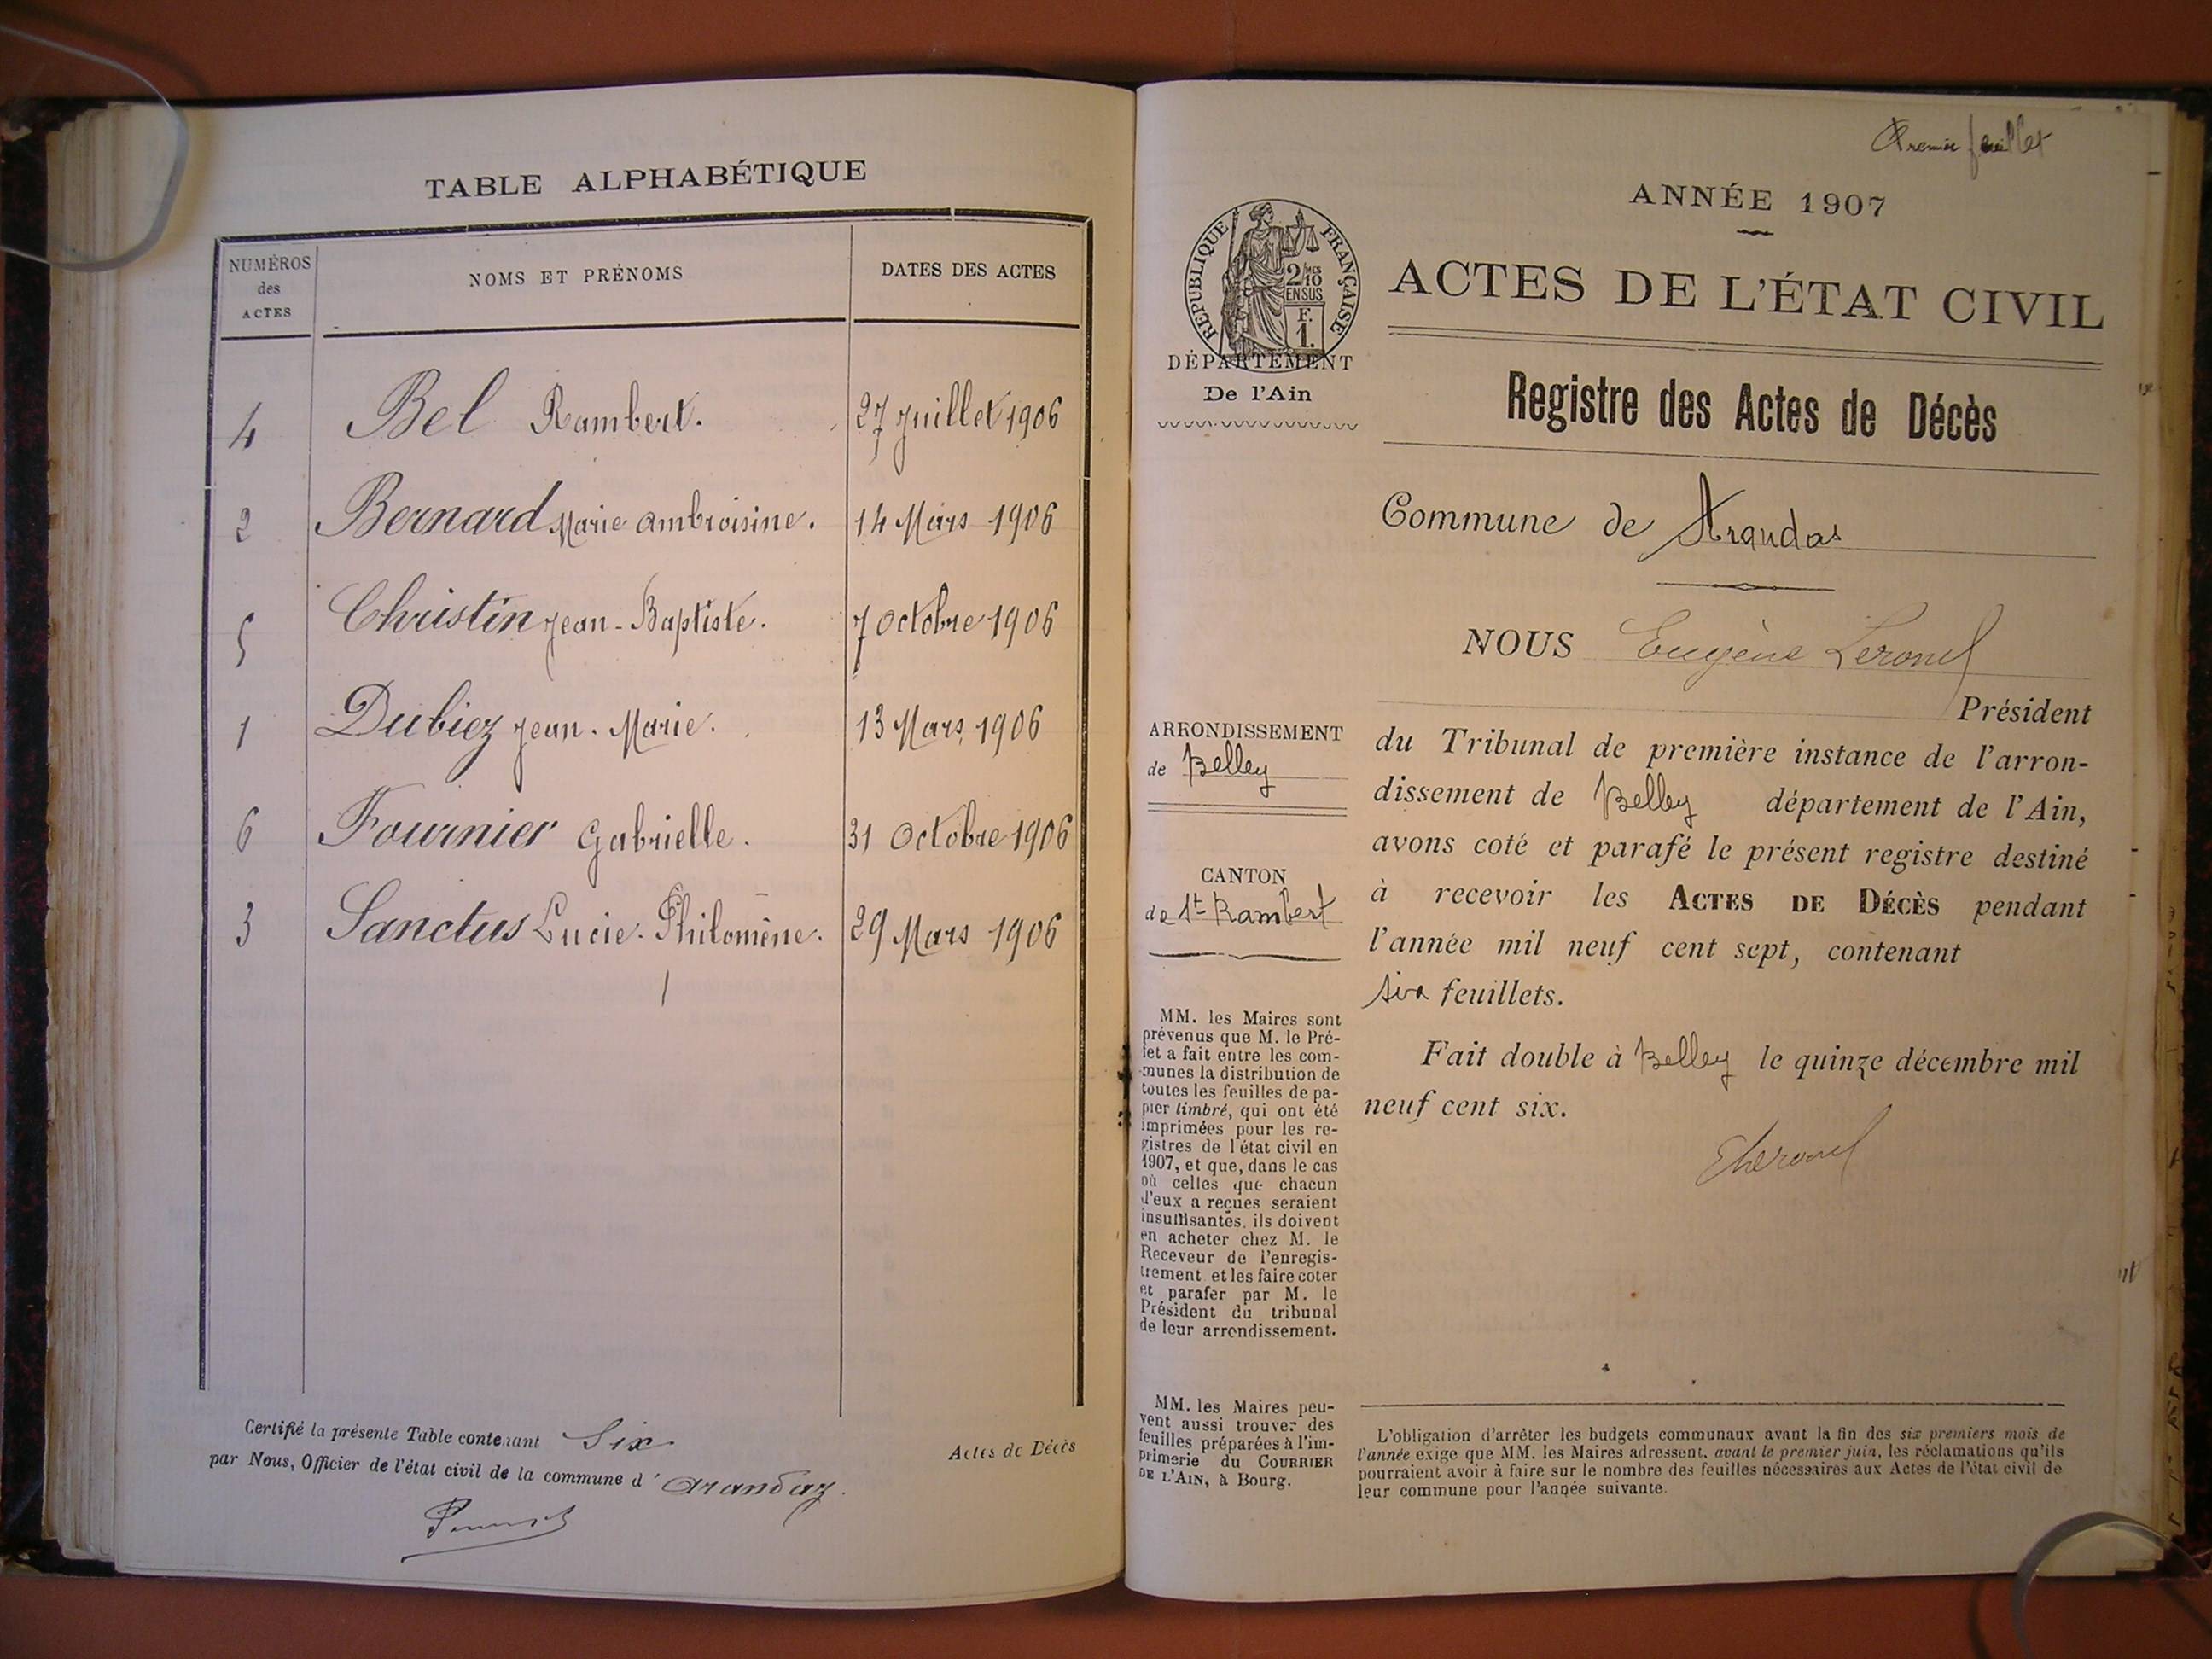 TABLE ALPHABÉTIQUE
NUMÉROS des ACTES
NOMS ET PRÉNOMS
DATES DES ACTES
4 Bel Rambert. 27 Juillet 1906
2 Bernard Marie Ambroisine. 14 Mars 1906
5 Christin Jean-Baptiste. 7 Octobre 1906
1 Dubiez Jean-Marie. 13 Mars 1906
6 Fournier Gabrielle. 31 Octobre 1906
3 Sanctus Lucie-Philomène. 29 Mars 1906
Certifié la présente Table contenant Six
par Nous, Officier de l'état civil de la commune d' Arandaz.
Actes de Décès
Premier feuillet
ANNÉE 1907
RÉPUBLIQUE FRANÇAISE
2/10 MES
EN SUS
F.
1.
ACTES DE L'ÉTAT CIVIL
DÉPARTEMENT
De l'Ain
Registre des Actes de Décès
Commune de Arandas
NOUS Eugène
Président
du Tribunal de première instance de l'arron-
dissement de Belley département de l'Ain,
avons coté et parafé le présent registre destiné
à recevoir les ACTES DE DÉCÈS pendant
l'année mil neuf cent sept, contenant
six feuillets.
Fait double à Belley le quinze décembre mil
neuf cent six.
ARRONDISSEMENT
de Belley
CANTON
de St Rambert
MM. les Maires sont
prévenus que M. le Pré-
fet a fait entre les com-
munes la distribution de
toutes les feuilles de pa-
pier timbré, qui ont été
imprimées pour les re-
gistres de l'état civil en
1907, et que, dans le cas
où celles que chacun
d'eux a reçues seraient
insuffisantes, ils doivent
en acheter chez M. le
Receveur de l'enregis-
trement et les faire coter
et parafer par M. le
Président du tribunal
de leur arrondissement.
MM. les Maires peu-
vent aussi trouver des
feuilles préparées à l'im-
primerie du COURRIER
DE L'AIN, à Bourg.
L'obligation d'arrêter les budgets communaux avant la fin des six premiers mois de
l'année exige que MM. les Maires adressent, avant le premier juin, les réclamations qu'ils
pourraient avoir à faire sur le nombre des feuilles nécessaires aux Actes de l'état civil de
leur commune pour l'année suivante.